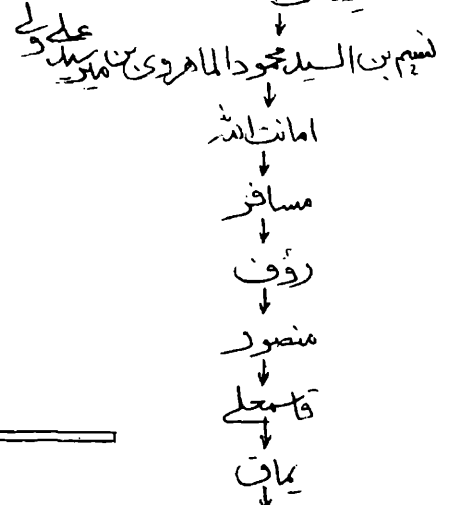 نسیم بن السید محمود الماهروی بن میر سید علی ولی
امانت اللہ
مسافر
رؤف
منصور
قاسمعلی
یماق